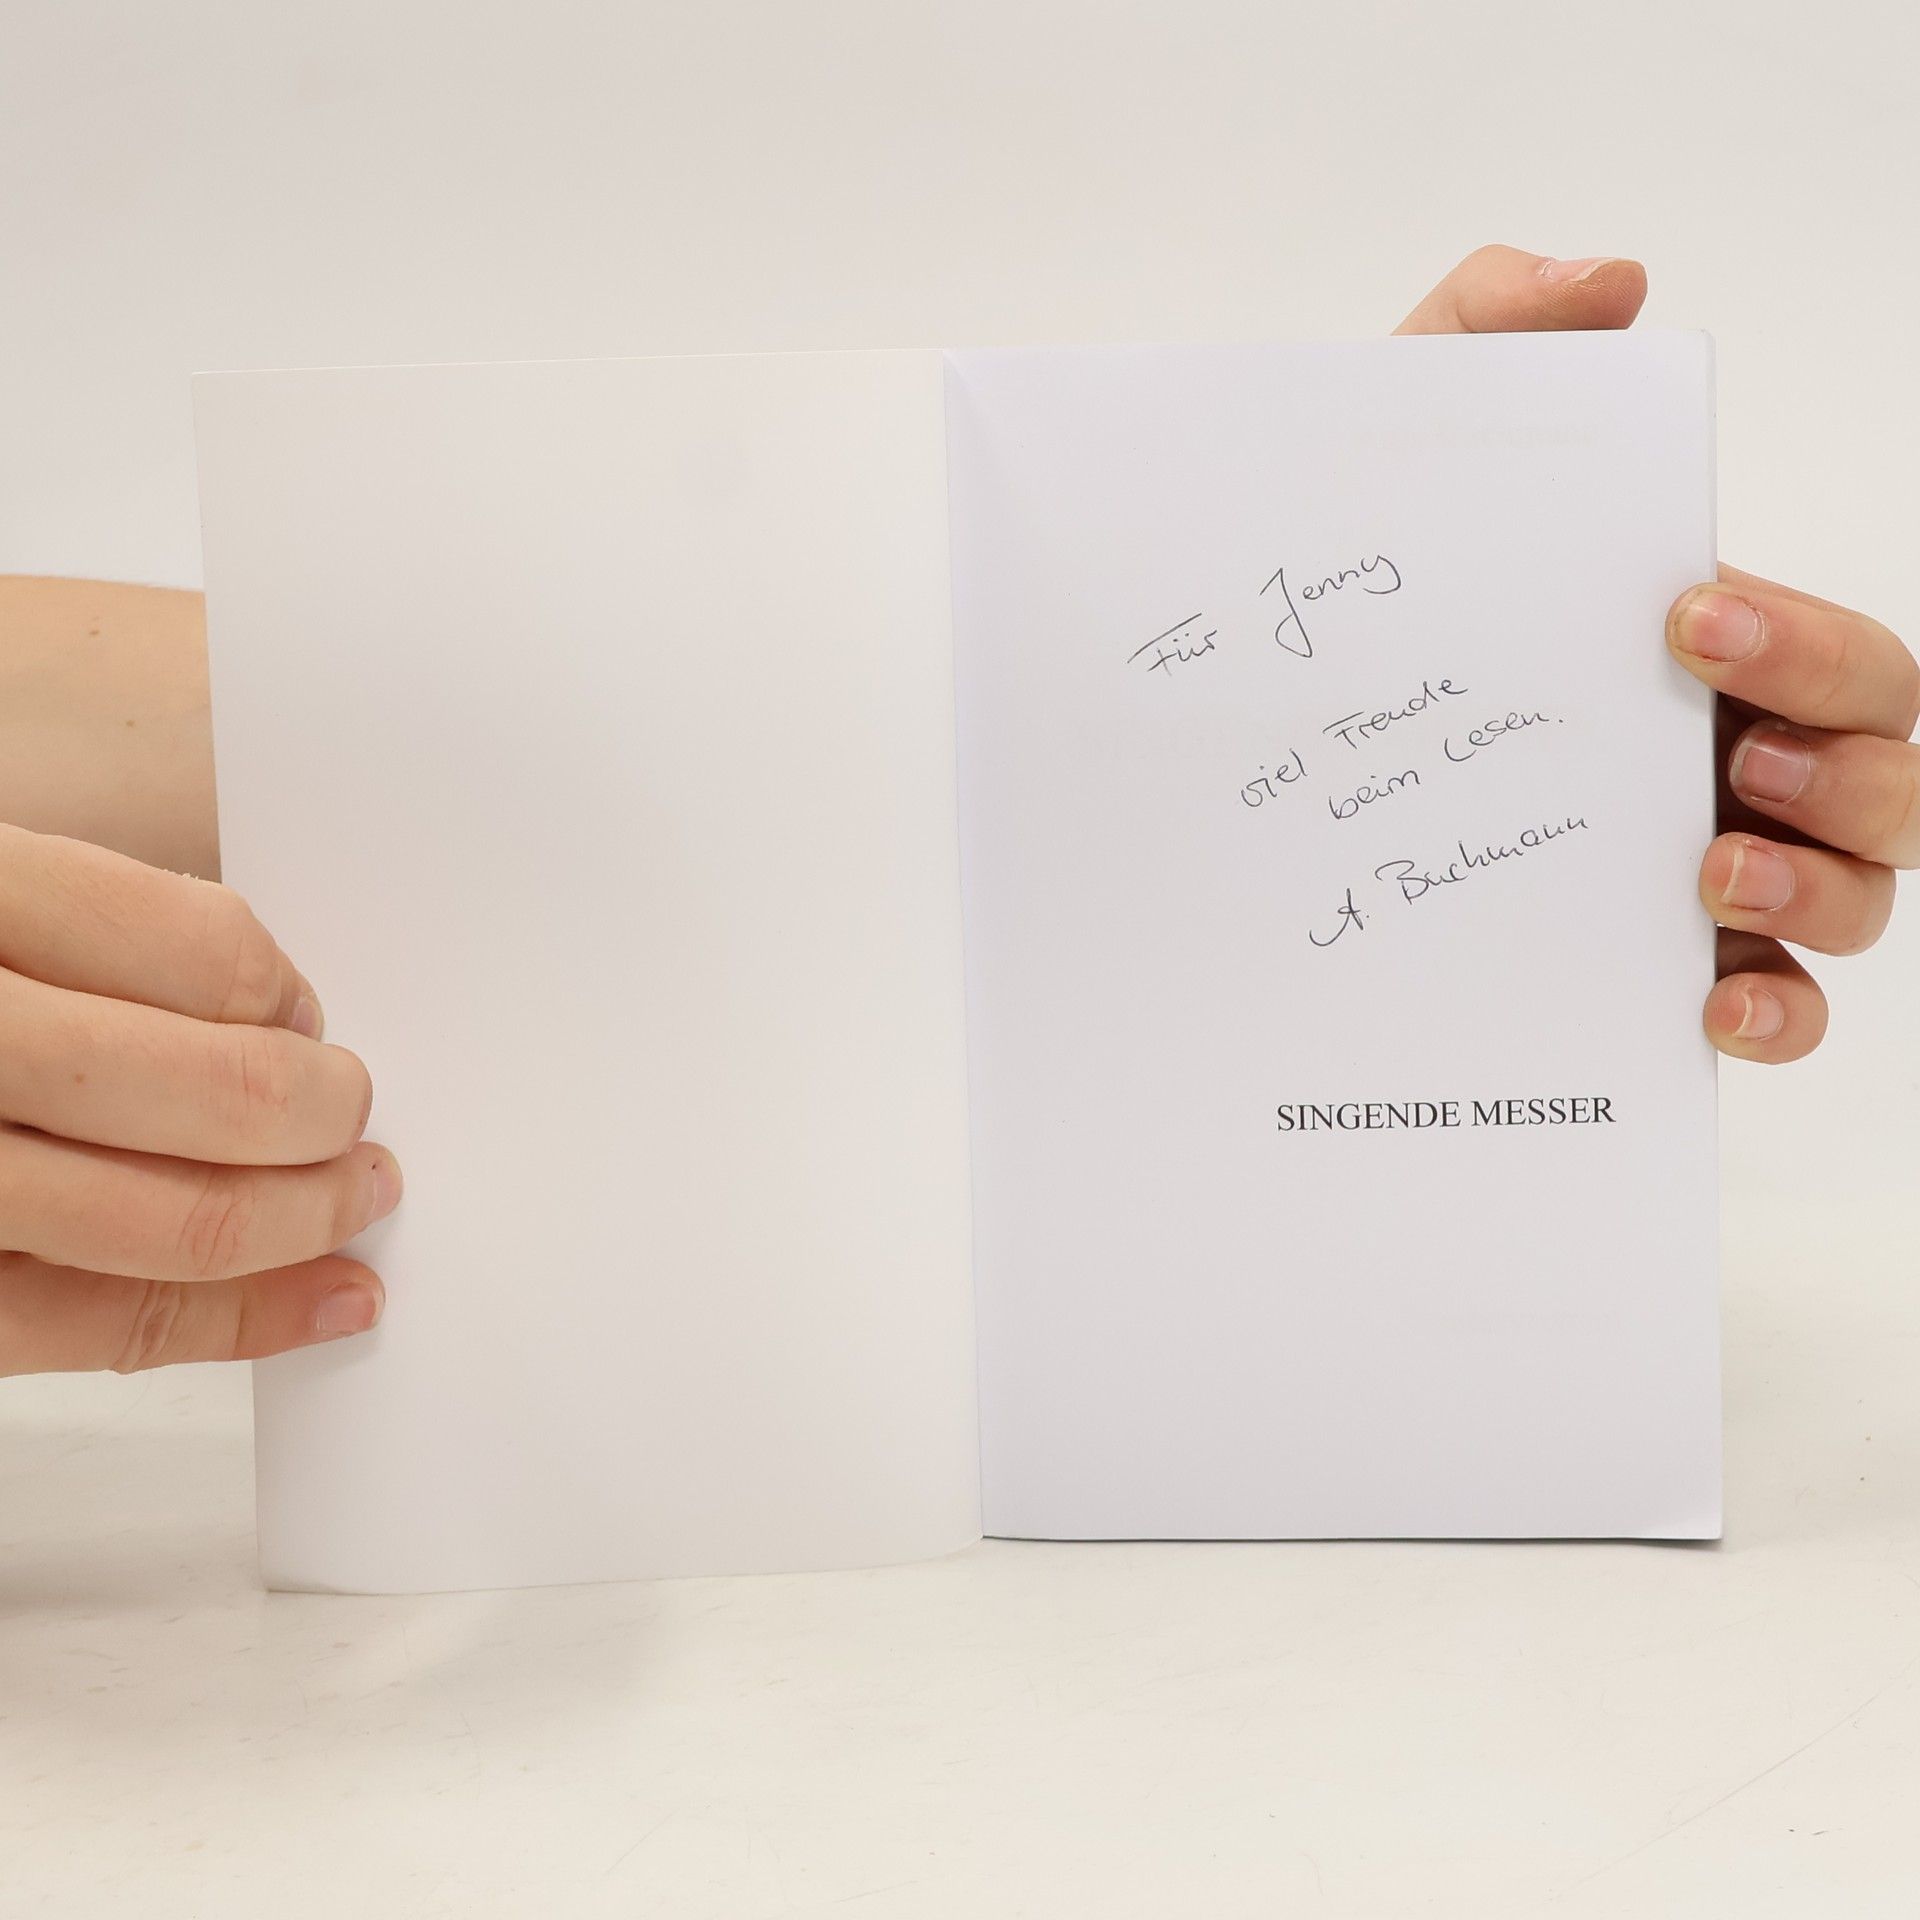 Für Jenny
viel Freude
beim Lesen.
A. Buchmann
SINGENDE MESSER